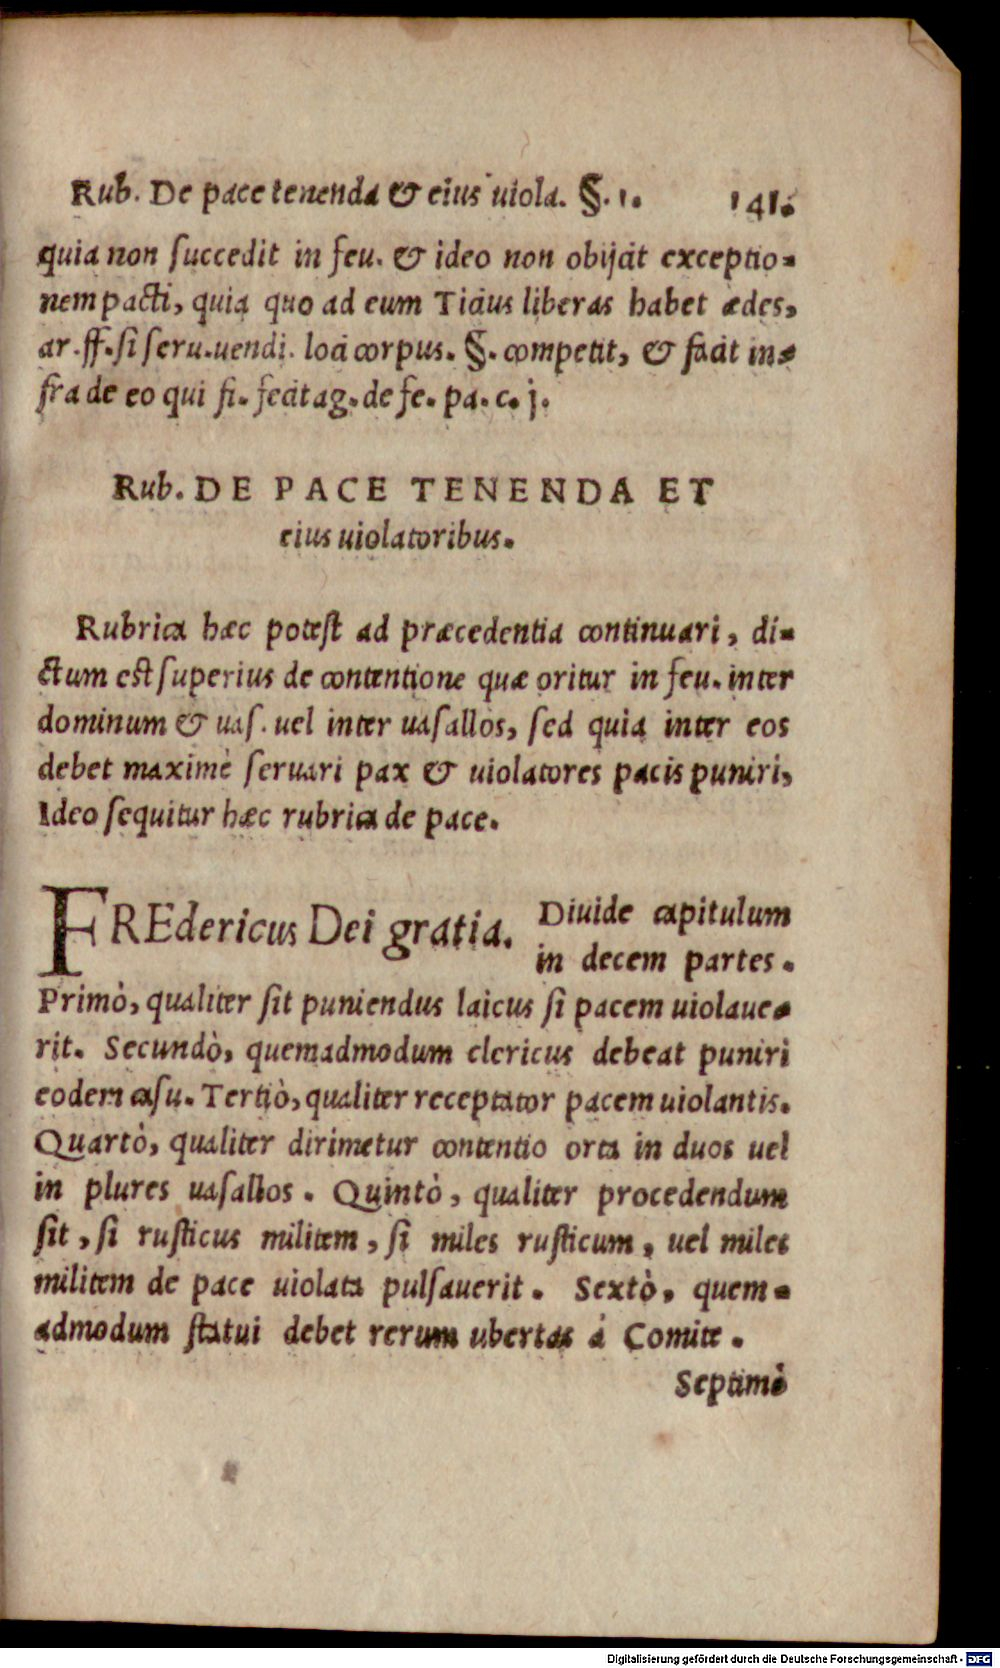 Rub. De pace tenenda & eius uiola. §. 1. 141.
quia non succedit in feu. & ideo non obijcit exceptio-
nem pacti, quia quo ad eum Ticius liberas habet ædes,
ar. ff. si seru. uendi. loci corpus. §. competit, & facit in-
fra de eo qui fi. fecit ag. de fe. pa. c. j.
Rub. DE PACE TENENDA ET
eius uiolatoribus.
Rubrica hæc potest ad præcedentia continuari, di-
ctum est superius de contentione quæ oritur in feu. inter
dominum & uas. uel inter uasallos, sed quia inter eos
debet maximè seruari pax & uiolatores pacis puniri,
Ideo sequitur hæc rubrica de pace.
FREdericus Dei gratia. Diuide capitulum
in decem partes.
Primò, qualiter sit puniendus laicus si pacem uiolaue-
rit. Secundò, quemadmodum clericus debeat puniri
eodem casu. Tertiò, qualiter receptator pacem uiolantis.
Quartò, qualiter dirimetur contentio orta in duos uel
in plures uasallos. Quintò, qualiter procedendum
sit, si rusticus militem, si miles rusticum, uel miles
militem de pace uiolata pulsauerit. Sextò, quem-
admodum statui debet rerum ubertas à Comite.
Septimò
Digitalisierung gefördert durch die Deutsche Forschungsgemeinschaft - DFG